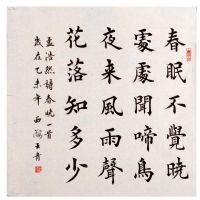 春眠不覺曉
處處聞啼鳥
夜来風雨聲
花落知多少
孟浩然詩春曉一首
歲在乙未年